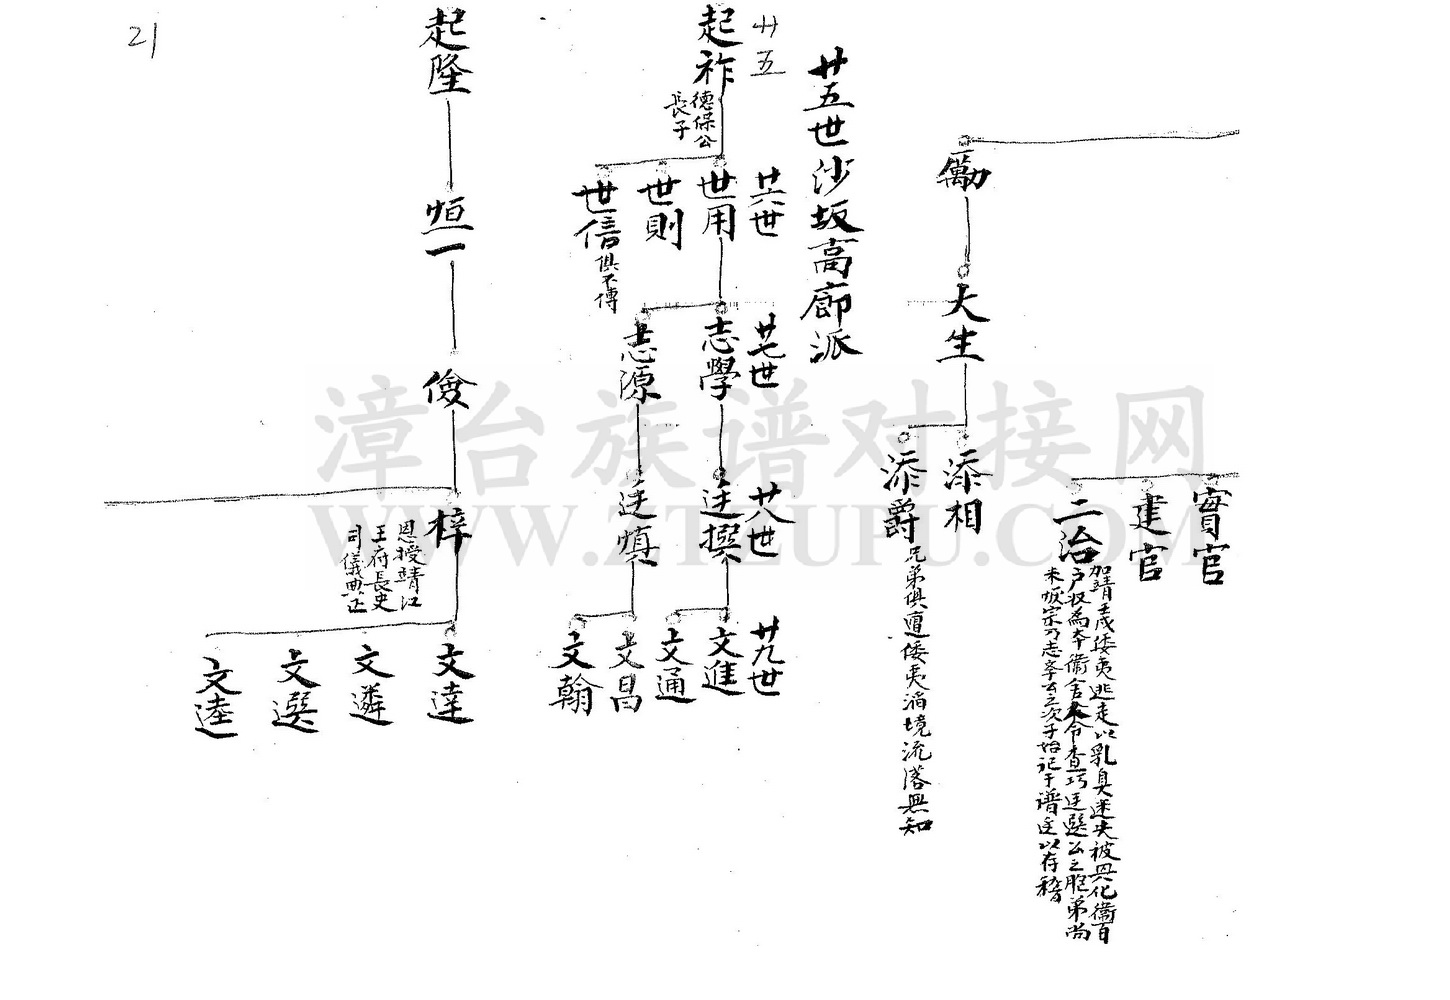 21
實官
建官
二治
加靖壬歲倭夷逃走以乳臭迷失被興化衛百
户收為本衛舍
令查巧廷選公之胞弟尚
未皈宗乃志
次子始記于譜廷以存稽
勵
大生
添相
添爵
兄弟俱遭倭夷滔境流落無知
廿五世沙坂高廍派
廿五
廿六世
廿七世
廿八世
廿九世
起祚
德保公
長子
世用
世則
世信
俱不傳
志學
志源
廷撰
廷慎
文進
文通
文昌
文翰
起隆
恒一
儉
梓
恩授靖江
王府長史
司儀典正
文達
文遴
文選
文逵
漳台族谱对接网
WWW.ZTZUPU.COM